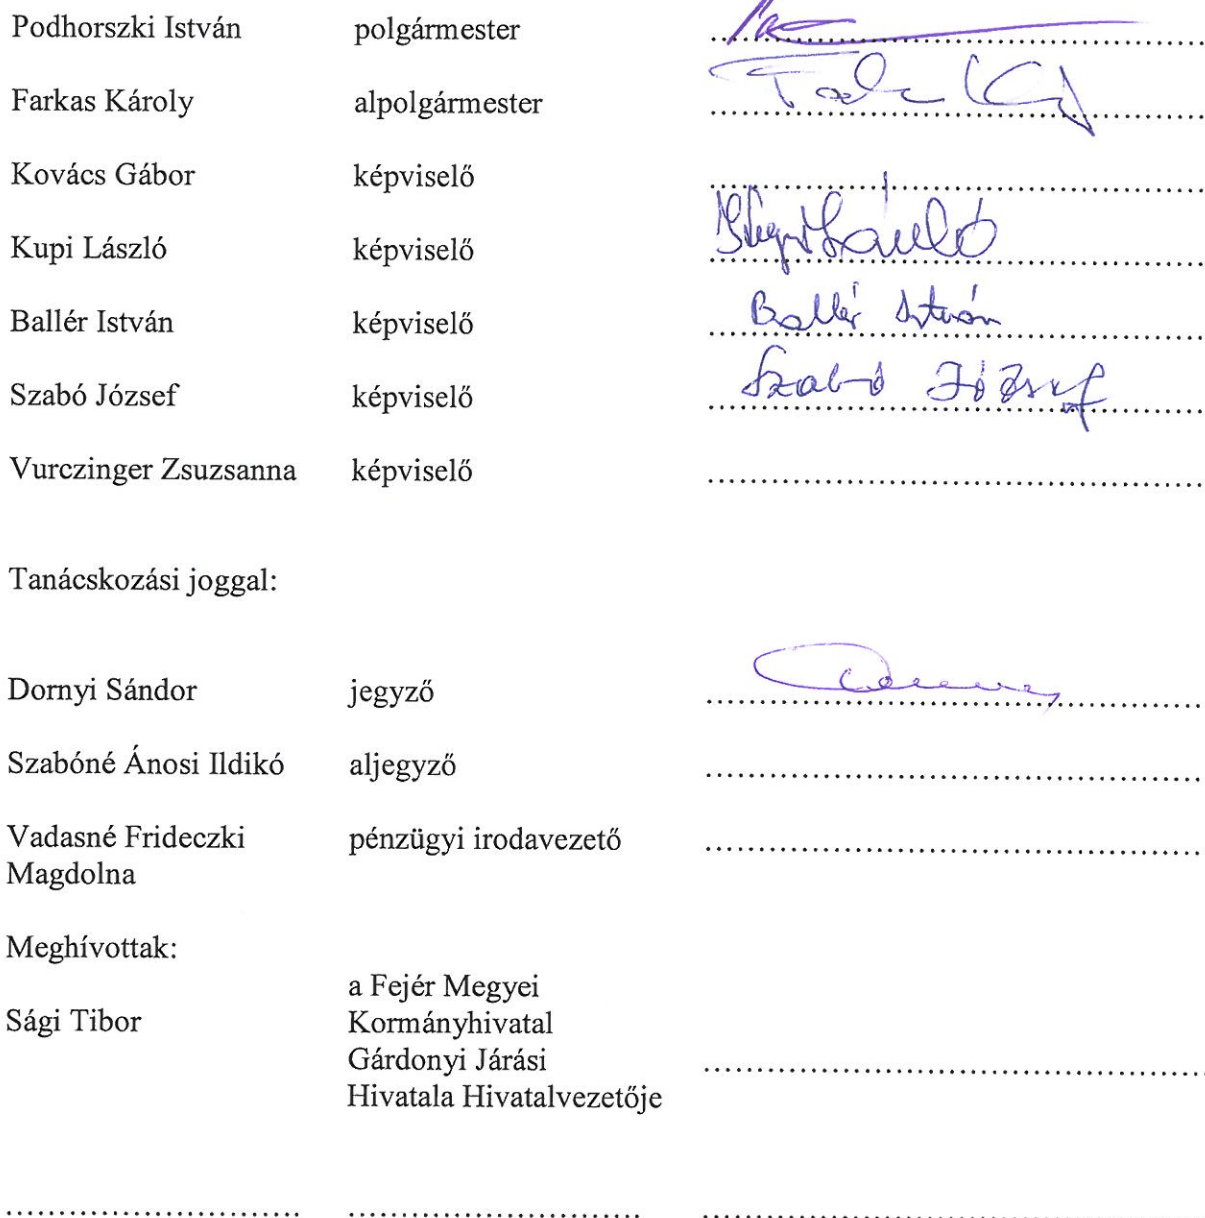 Podhorszki István polgármester ........................................
Farkas Károly alpolgármester ........................................
Kovács Gábor képviselő ........................................
Kupi László képviselő László
Ballér István képviselő Ballér István
Szabó József képviselő Szabó József
Vurczinger Zsuzsanna képviselő ........................................
Tanácskozási joggal:
Dornyi Sándor jegyző ........................................
Szabóné Ánosi Ildikó aljegyző ........................................
Vadasné Frideczki pénzügyi irodavezető ........................................
Magdolna
Meghívottak:
a Fejér Megyei
Sági Tibor Kormányhivatal
Gárdonyi Járási ........................................
Hivatala Hivatalvezetője